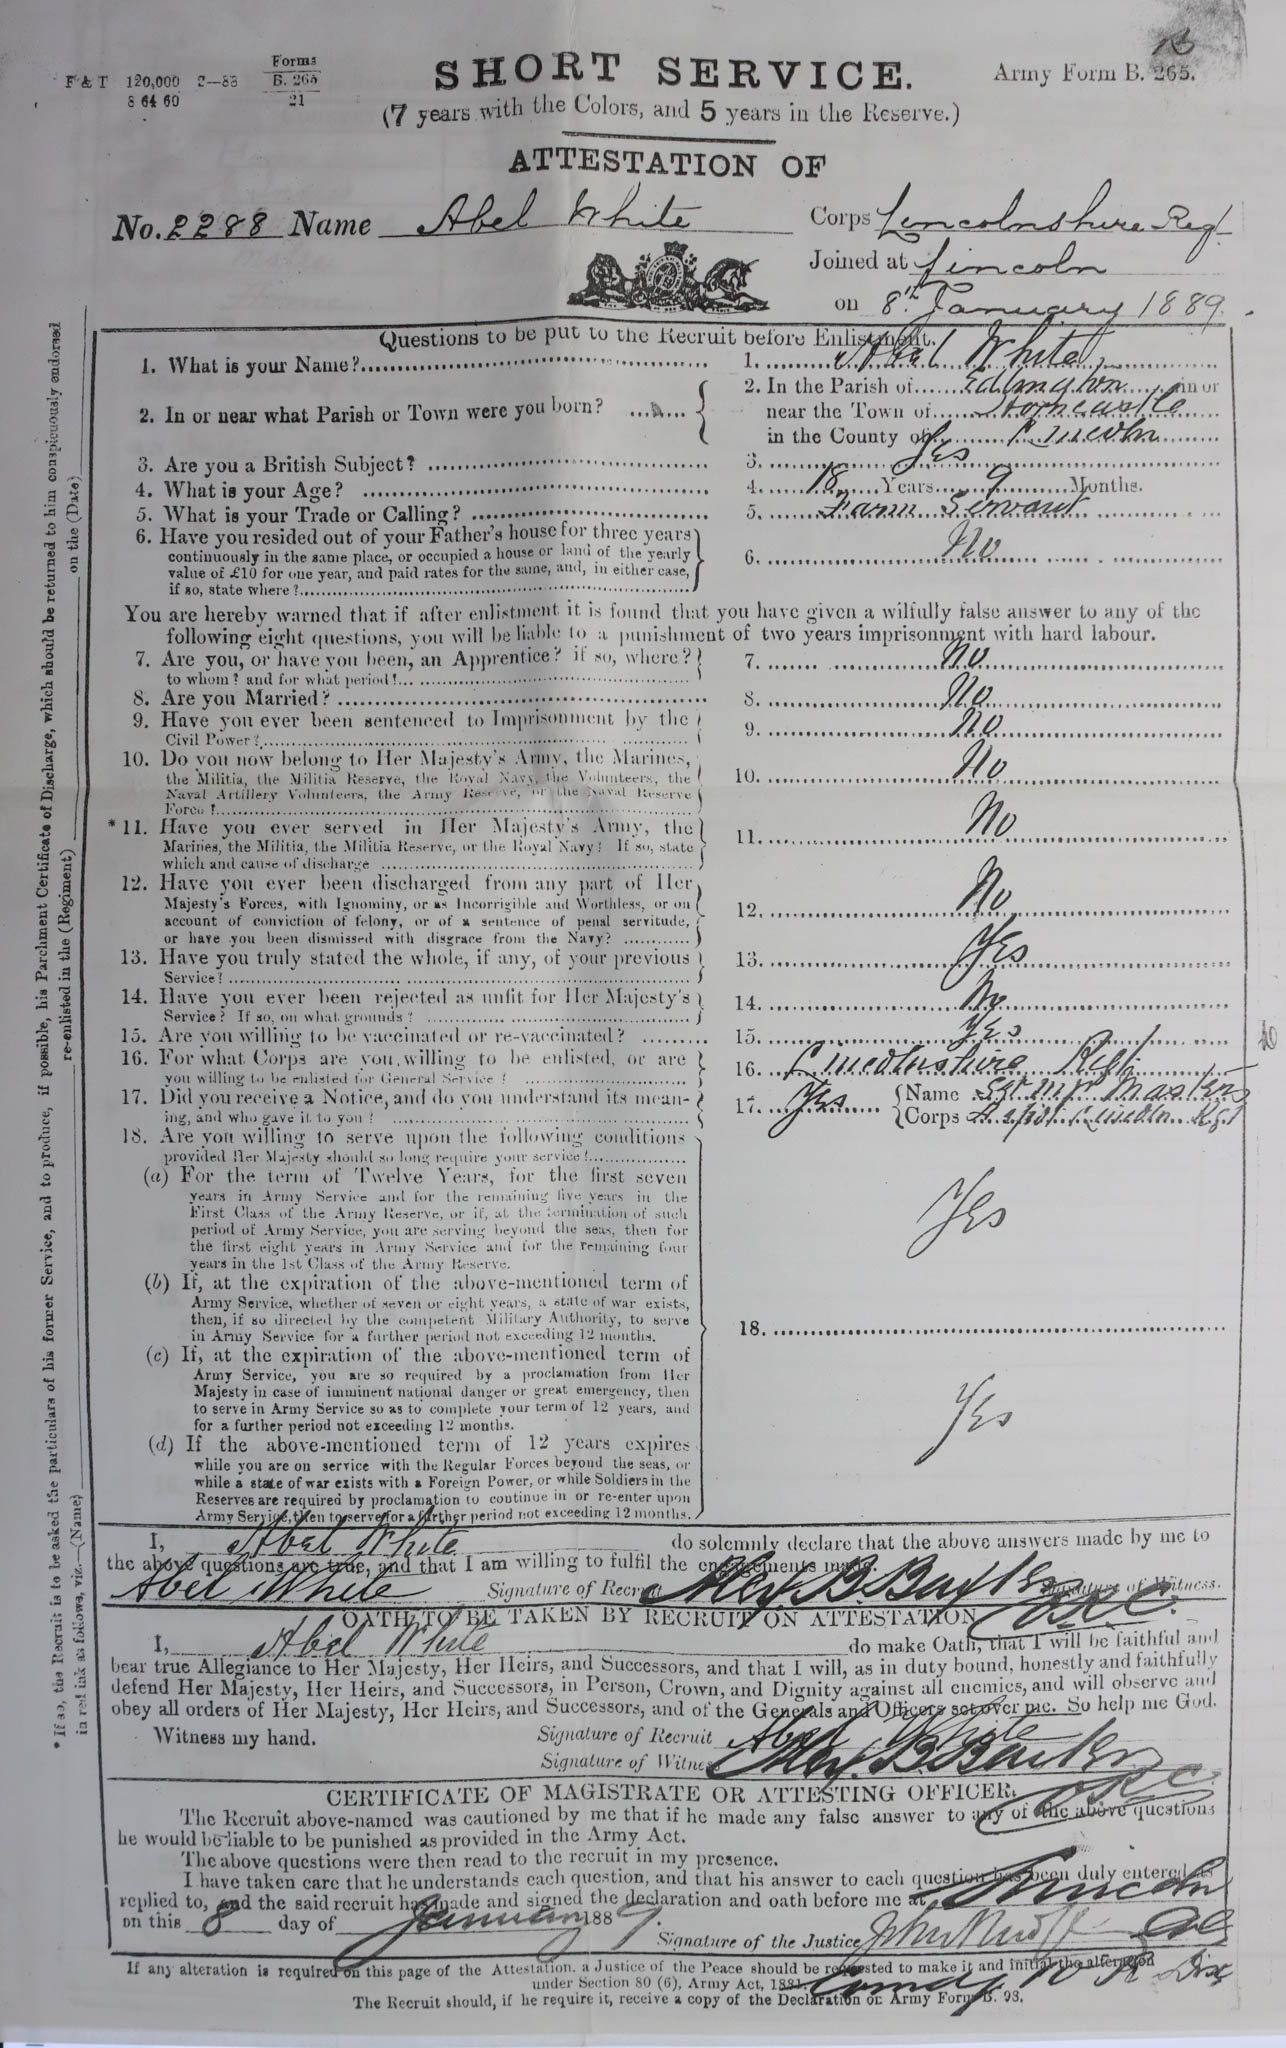 F & T 120,000 2—88 Forms B. 265 21
8 64 60
SHORT SERVICE.
Army Form B. 265.
(7 years with the Colors, and 5 years in the Reserve.)
ATTESTATION OF
No. 2288 Name Abel White Corps Lincolnshire Regt
Joined at Lincoln
on 8th January 1889.
Questions to be put to the Recruit before Enlistment.
1. What is your Name? 1. Abel White
2. In or near what Parish or Town were you born? 2. In the Parish of Edlington in or
near the Town of Horncastle
in the County of Lincoln
3. Are you a British Subject? 3. Yes
4. What is your Age? 4. 18 Years 9 Months.
5. What is your Trade or Calling? 5. Farm Servant
6. Have you resided out of your Father's house for three years
continuously in the same place, or occupied a house or land of the yearly
value of £10 for one year, and paid rates for the same, and, in either case,
if so, state where? 6. No
You are hereby warned that if after enlistment it is found that you have given a wilfully false answer to any of the
following eight questions, you will be liable to a punishment of two years imprisonment with hard labour.
7. Are you, or have you been, an Apprentice? if so, where?
to whom? and for what period? 7. No
8. Are you Married? 8. No
9. Have you ever been sentenced to Imprisonment by the
Civil Power? 9. No
10. Do you now belong to Her Majesty's Army, the Marines,
the Militia, the Militia Reserve, the Royal Navy, the Volunteers, the
Naval Artillery Volunteers, the Army Reserve, or the Naval Reserve
Force? 10. No
* 11. Have you ever served in Her Majesty's Army, the
Marines, the Militia, the Militia Reserve, or the Royal Navy? If so, state
which and cause of discharge 11. No
12. Have you ever been discharged from any part of Her
Majesty's Forces, with Ignominy, or as Incorrigible and Worthless, or on
account of conviction of felony, or of a sentence of penal servitude,
or have you been dismissed with disgrace from the Navy? 12. No
13. Have you truly stated the whole, if any, of your previous
Service? 13. Yes
14. Have you ever been rejected as unfit for Her Majesty's
Service? If so, on what grounds? 14. No
15. Are you willing to be vaccinated or re-vaccinated? 15. Yes
16. For what Corps are you willing to be enlisted, or are
you willing to be enlisted for General Service? 16. Lincolnshire Regt
17. Did you receive a Notice, and do you understand its mean-
ing, and who gave it to you? 17. Yes Name Sgt Masters
Corps Lincoln Rgt
18. Are you willing to serve upon the following conditions
provided Her Majesty should so long require your service?
(a) For the term of Twelve Years, for the first seven
years in Army Service and for the remaining five years in the
First Class of the Army Reserve, or if, at the termination of such
period of Army Service, you are serving beyond the seas, then for
the first eight years in Army Service and for the remaining four
years in the 1st Class of the Army Reserve.
Yes
(b) If, at the expiration of the above-mentioned term of
Army Service, whether of seven or eight years, a state of war exists,
then, if so directed by the competent Military Authority, to serve
in Army Service for a further period not exceeding 12 months.
18.
(c) If, at the expiration of the above-mentioned term of
Army Service, you are so required by a proclamation from Her
Majesty in case of imminent national danger or great emergency, then
to serve in Army Service so as to complete your term of 12 years, and
for a further period not exceeding 12 months.
Yes
(d) If the above-mentioned term of 12 years expires
while you are on service with the Regular Forces beyond the seas, or
while a state of war exists with a Foreign Power, or while Soldiers in the
Reserves are required by proclamation to continue in or re-enter upon
Army Service, then to serve for a further period not exceeding 12 months.
I, Abel White do solemnly declare that the above answers made by me to
the above questions are true, and that I am willing to fulfil the engagements made.
Abel White Signature of Recruit Signature of Witness.
OATH TO BE TAKEN BY RECRUIT ON ATTESTATION
I, Abel White do make Oath, that I will be faithful and
bear true Allegiance to Her Majesty, Her Heirs, and Successors, and that I will, as in duty bound, honestly and faithfully
defend Her Majesty, Her Heirs, and Successors, in Person, Crown, and Dignity against all enemies, and will observe and
obey all orders of Her Majesty, Her Heirs, and Successors, and of the Generals and Officers set over me. So help me God.
Witness my hand. Signature of Recruit Abel White
Signature of Witness
CERTIFICATE OF MAGISTRATE OR ATTESTING OFFICER.
The Recruit above-named was cautioned by me that if he made any false answer to any of the above questions
he would be liable to be punished as provided in the Army Act.
The above questions were then read to the recruit in my presence.
I have taken care that he understands each question, and that his answer to each question has been duly entered as
replied to, and the said recruit has made and signed the declaration and oath before me at Lincoln
on this 8 day of January 1889.
Signature of the Justice John
If any alteration is required on this page of the Attestation. a Justice of the Peace should be requested to make it and initial the alteration
under Section 80 (6), Army Act, 1881.
The Recruit should, if he require it, receive a copy of the Declaration on Army Form B. 98.
* If so, the Recruit is to be asked the particulars of his former Service, and to produce, if possible, his Parchment Certificate of Discharge, which should be returned to him conspicuously endorsed
in red ink as follows, viz.—(Name) re-enlisted in the (Regiment) on the (Date)